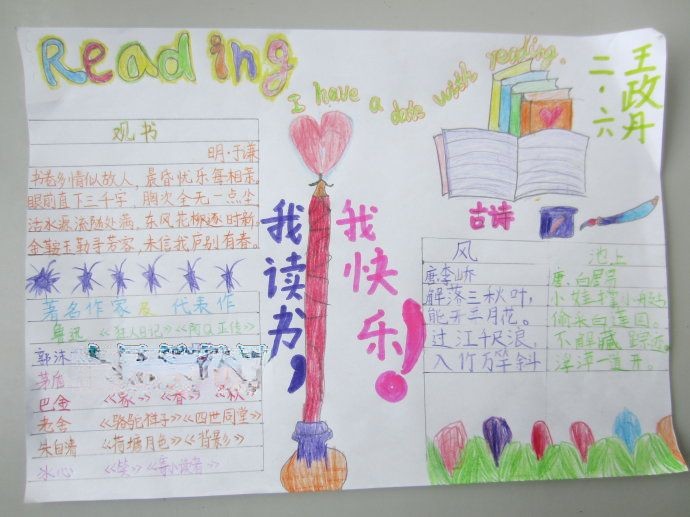 Reading
I have a date with reading.
王政丹
二·六
观书
明·于谦
书卷多情似故人，晨昏忧乐每相亲。
眼前直下三千字，胸次全无一点尘。
活水源流随处满，东风花柳逐时新。
金鞍玉勒寻芳客，未信我庐别有春。
著名作家及 代表作
鲁迅 《狂人日记》《阿Q正传》
郭沫
茅盾
巴金 《家》《春》《秋》
老舍 《骆驼祥子》《四世同堂》
朱自清 《荷塘月色》《背影》
冰心 《笑》《寄小读者》
我读书，
我快乐！
古诗
风
唐·李峤
解落三秋叶，
能开二月花。
过江千尺浪，
入竹万竿斜
池上
唐·白居易
小娃撑小艇
偷采白莲回。
不解藏踪迹
浮萍一道开。